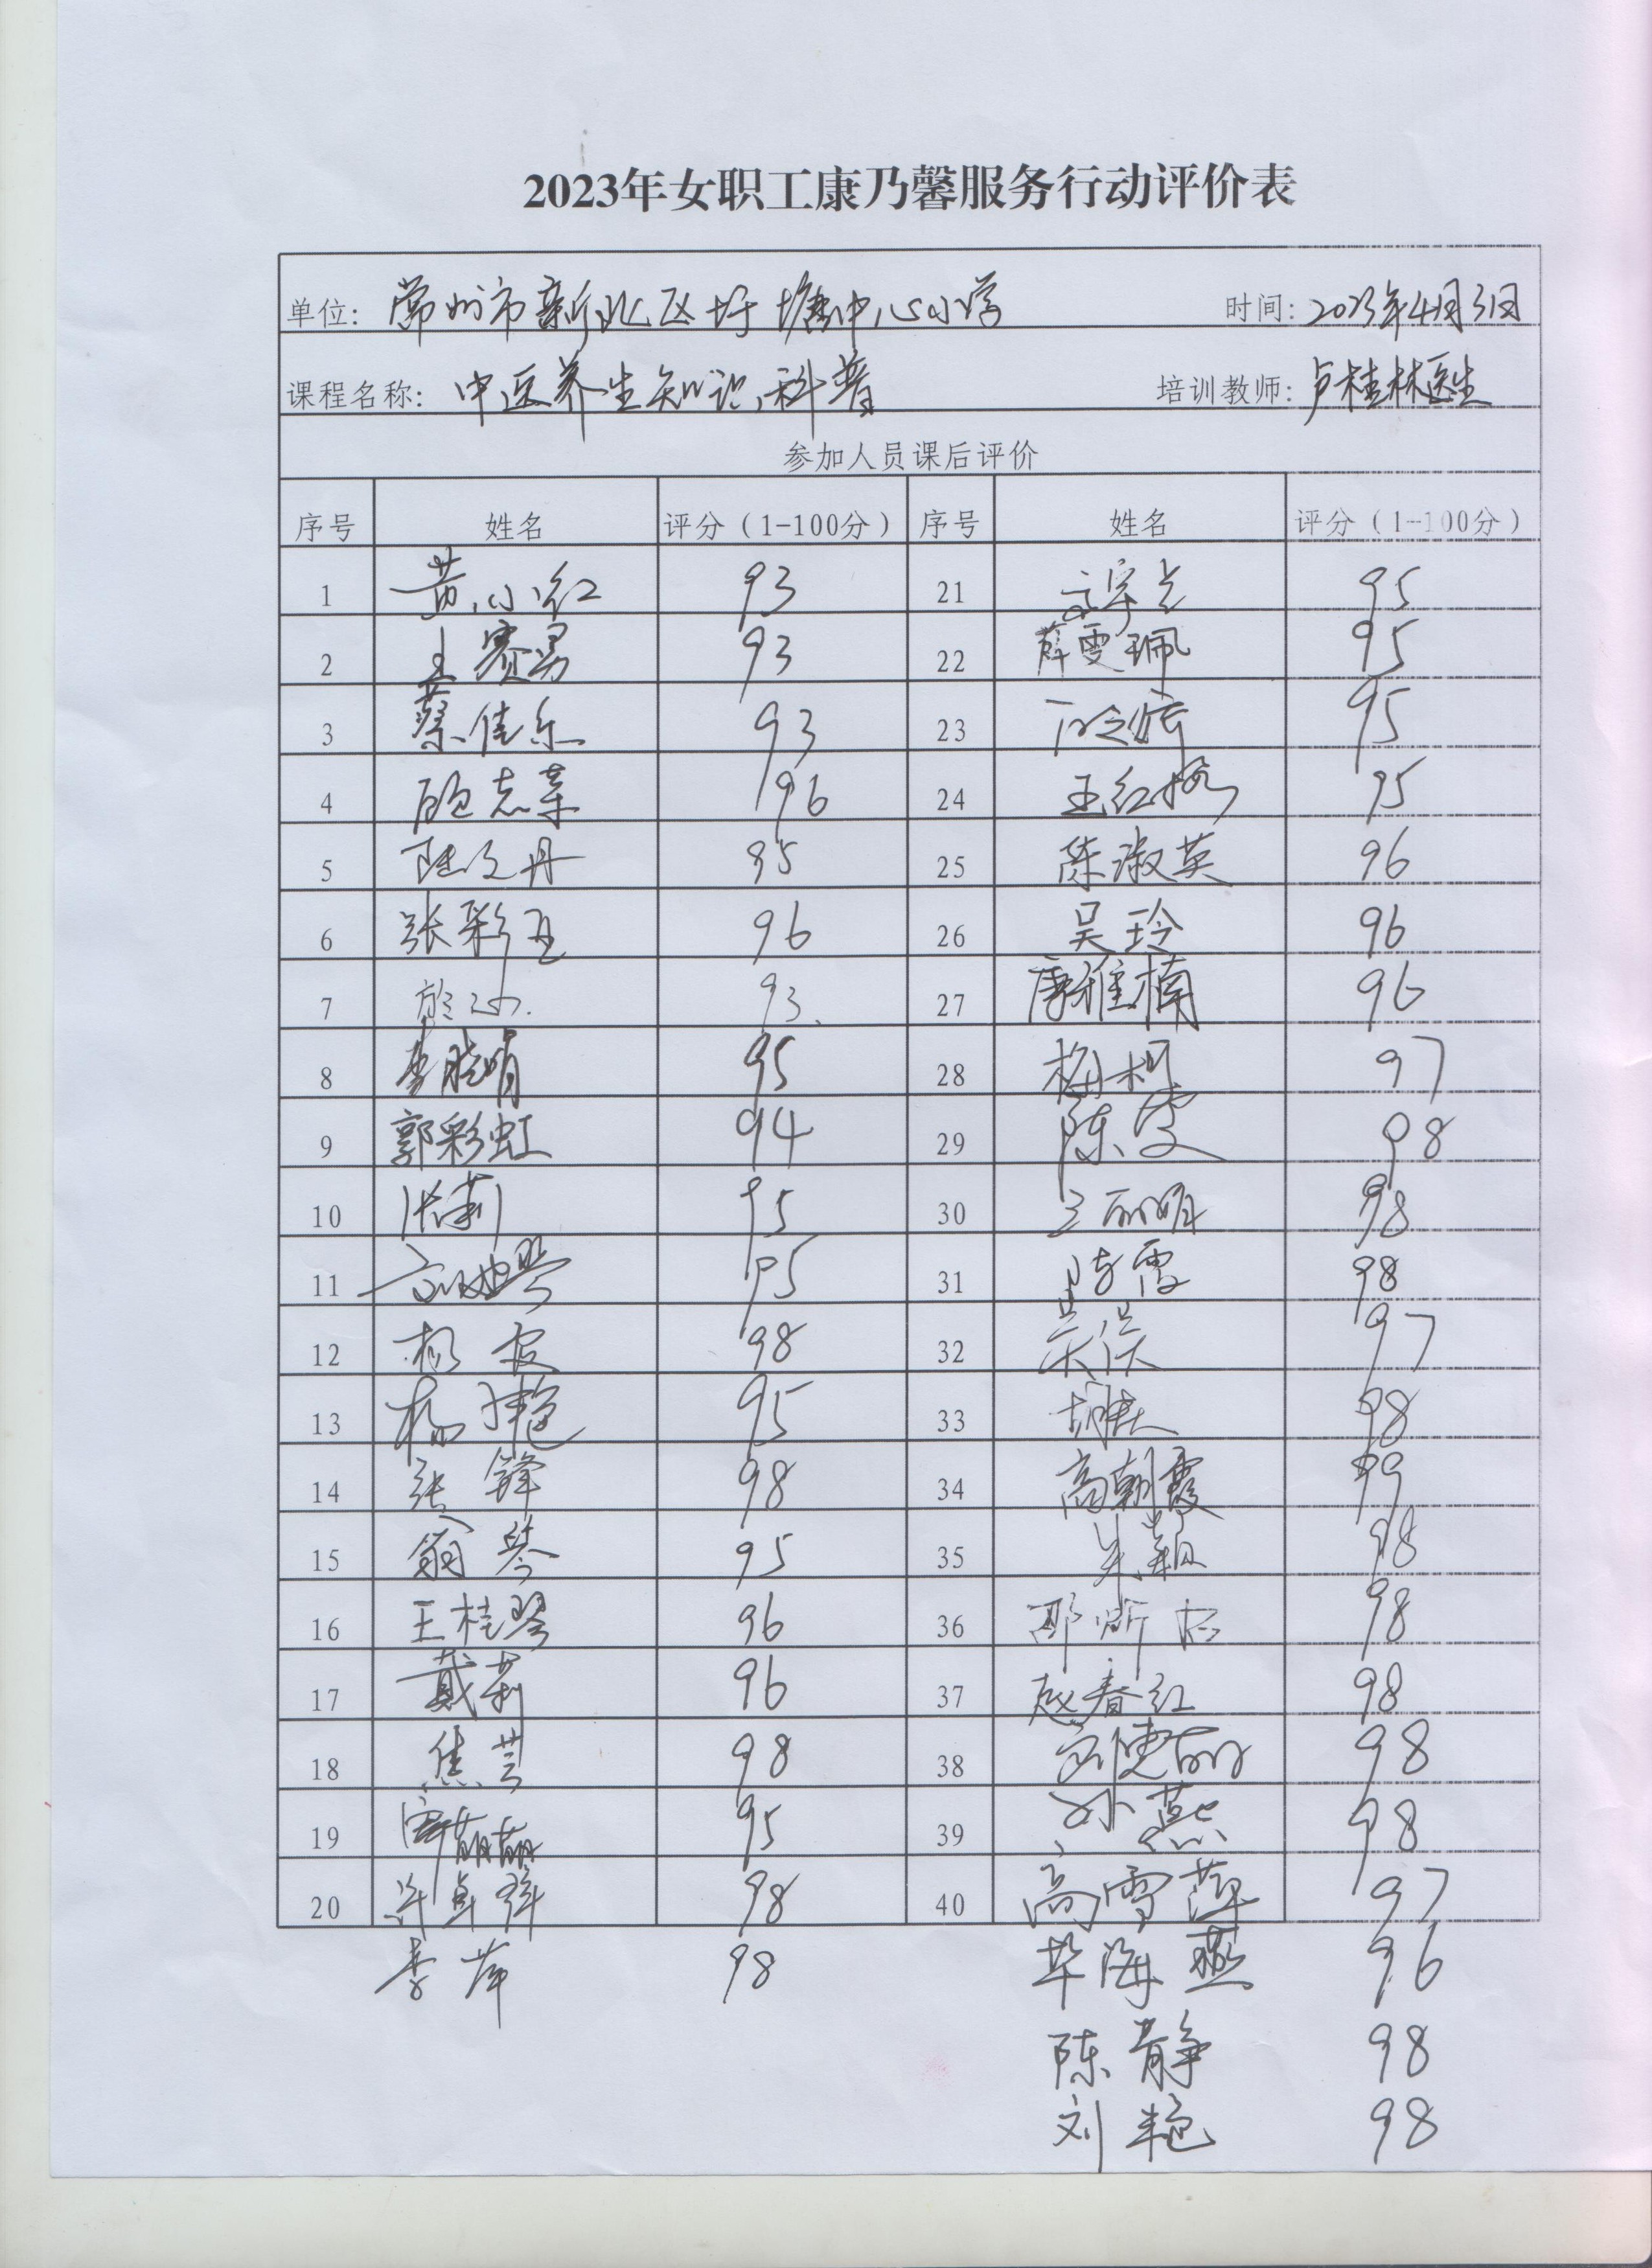 2023年女职工康乃馨服务行动评价表
单位: 常州市新北区圩塘中心小学 时间: 2023年4月31日
课程名称: 中医养生知识科普 培训教师: 卢桂林医生
参加人员课后评价
序号 姓名 评分（1-100分） 序号 姓名 评分（1-100分）
1 黄小红 93 21 95
2 王赛男 93 22 薛雯珮 95
3 蔡佳乐 93 23 95
4 顾志菜 96 24 王红梅 95
5 陆文丹 95 25 陈淑英 96
6 张彩玉 96 26 吴玲 96
7 93 27 唐雅楠 96
8 李晓娟 95 28 梅柯 97
9 郭彩虹 94 29 陈雯 98
10 张莉 95 30 98
11 95 31 陆霞 98
12 98 32 吴娱 97
13 杨艳 95 33 98
14 张锋 98 34 高朝霞 99
15 翁琴 95 35 朱颖 98
16 王桂琴 96 36 98
17 戴莉 96 37 赵春红 98
18 焦芸 98 38 98
19 95 39 孙燕 98
20 98 40 高雪萍 97
李萍 98 毕海燕 96
陈静 98
刘艳 98